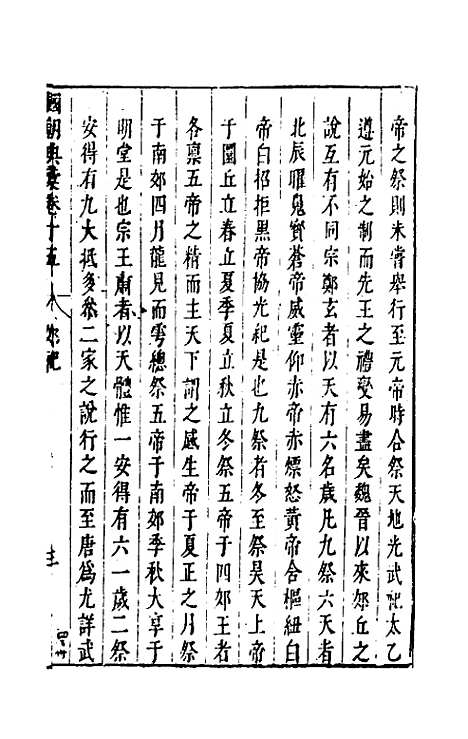 帝之祭則未嘗舉行至元帝時合祭天地光武祀太乙
遵元始之制而先王之禮變易盡矣魏晉以來郊丘之
說互有不同宗鄭玄者以天有六名歲凡九祭六天者
北辰曜鬼寳蒼帝威靈仰赤帝赤熛怒黃帝含樞紐白
帝白招拒黑帝協光祀是也九祭者冬至祭昊天上帝
于圜丘立春立夏季夏立秋立冬祭五帝于四郊王者
各禀五帝之精而主天下謂之感生帝于夏正之月祭
于南郊四月龍見而雩總祭五帝于南郊季秋大享于
明堂是也宗王肅者以天體惟一安得有六一歲二祭
安得有九大抵多叅二家之說行之而至唐爲尤詳武
國朝典彙卷十五 郊祀